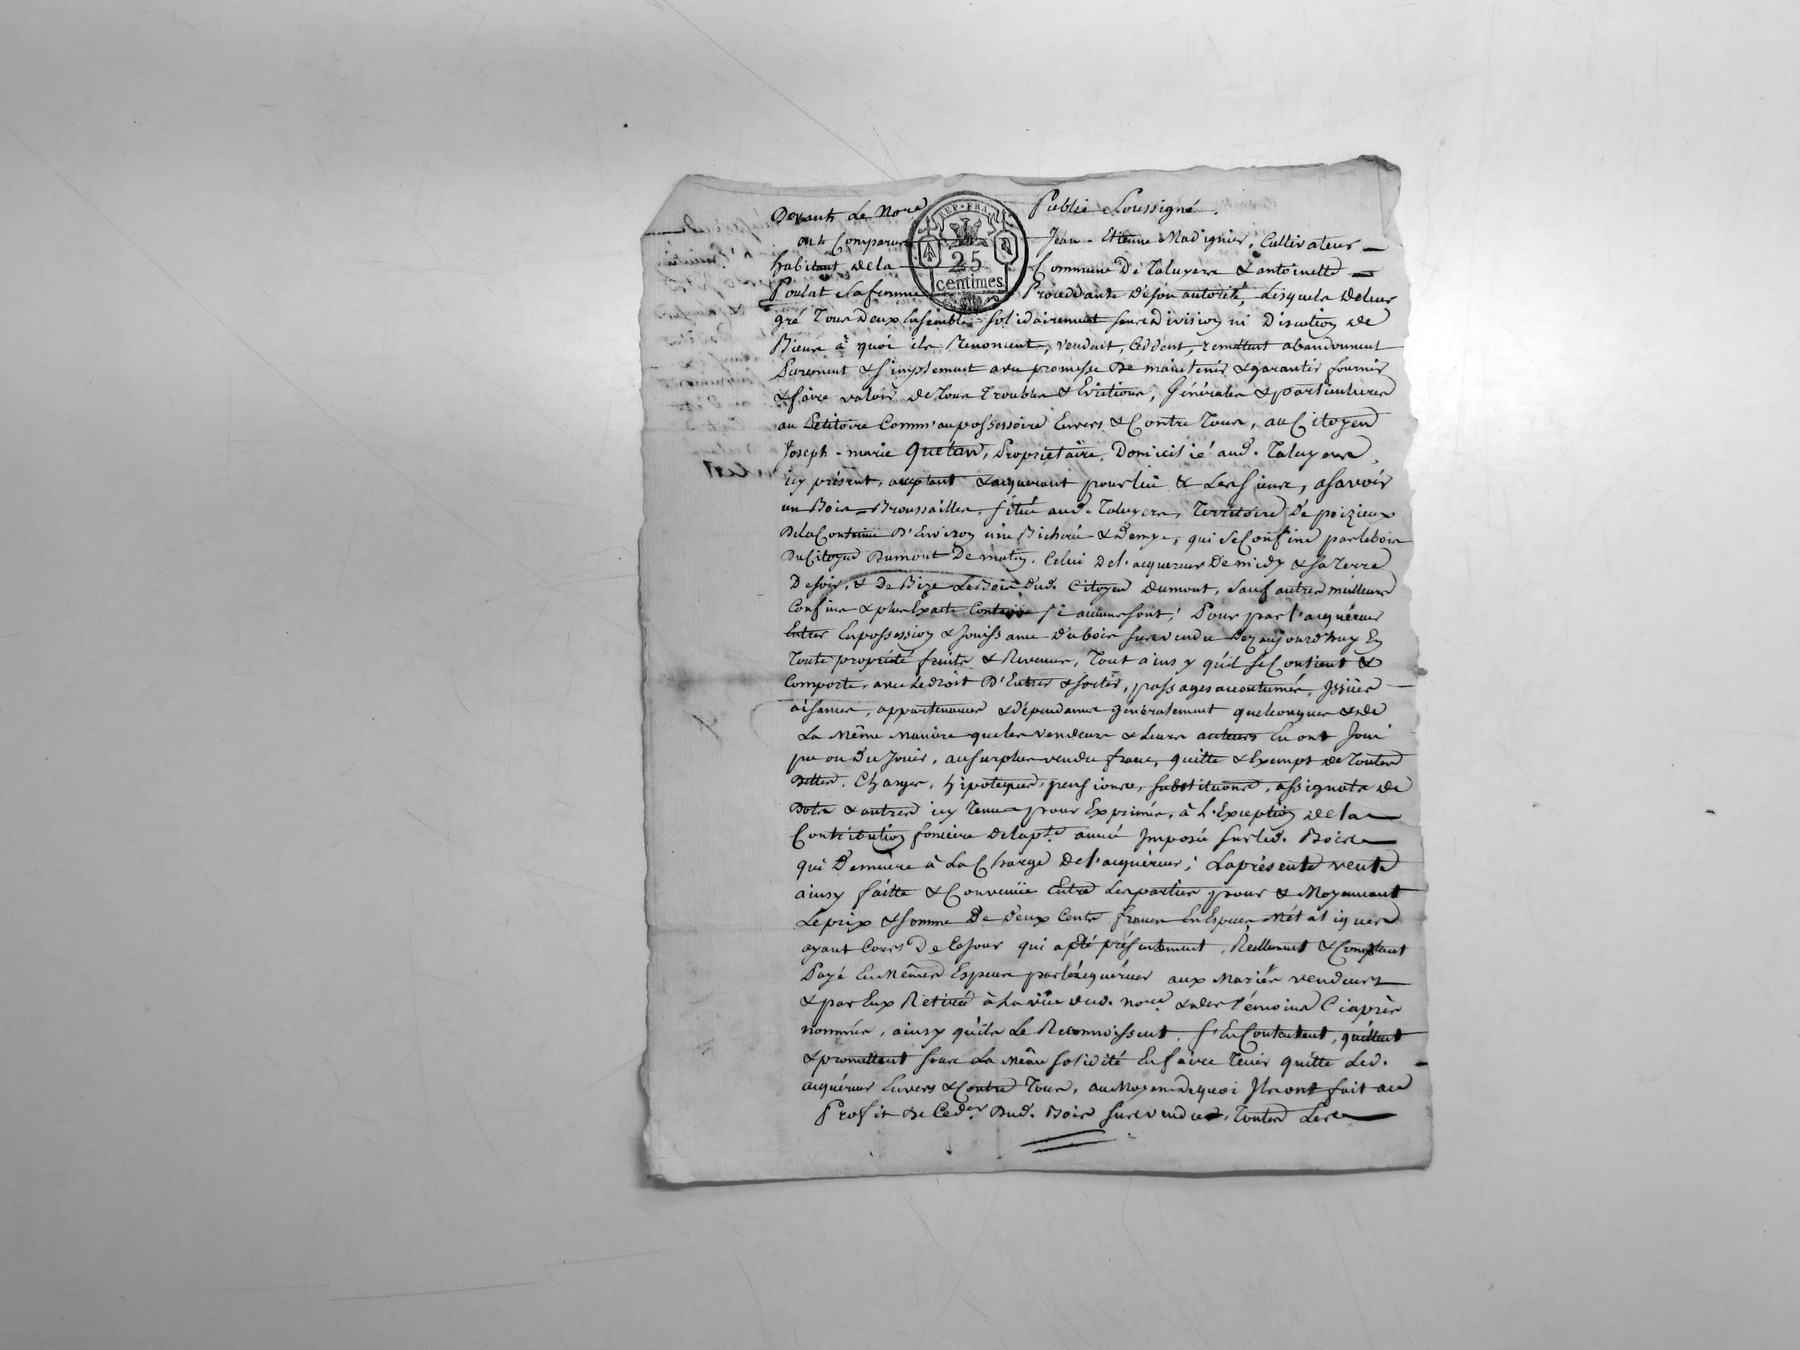 Devant Le No.re Public Soussigné.
ont Comparus Jean-Etienne Madignier, Cultivateur
habitant de la Commune De Taluyers & antoinette
Poulat Sa femme Procédante de son autorité, Lesquels de leur
gré Tous Deux Ensemble solidairement sans Division ni Discution de
Biens à quoi ils Renoncent, vendent, Cèdent, remettent abandonnent
Purement & simplement avec promesse De maintenir & garantir fournir
& faire valoir de Tous Troubles & Evictions, Générales & particulieres
au Pétitoire Comm' au possessoire Envers & Contre Tous, au Citoyen
Joseph-marie Quetan, Propriétaire, Domicilié aud. Taluyers,
icy présent, acceptant & acquerant pour lui & Les siens, a savoir
un Bois=Broussailles, situé aud. Taluyers, Territoire de poizieux
De la Contenue D'Environ une Bicherée & Demye, qui se Confine par le bois
Du Citoyen Dumont De matin, Celui de l'acquereur De midy & sa Terre
De soir, & De Bize Le Bois Dud. Citoyen Dumont, sauf autres meilleurs
Confins & plus Exacte Contenüe si aucuns sont; Pour par l'acquéreur
Entrer En possession & Jouissance Du bois sus vendu Dez aujourd'huy En
Toute propriété fruits & Revenus, Tout ainsy qu'il se Contient &
Comporte, avec Le droit D'Entrer & sortir, passages accoutumés, Issües
aisances, appartenances & dépendances généralement quelconques & de
La Même Manière que les vendeurs & Leurs auteurs En ont Joui
pu ou Du Jouir, au surplus vendu franc, quitte & Exempt de Toutes
Dettes, Charges, hipoteques, pensions, substitutions, assignats de
Dots & autres icy Tenus pour Exprimés, à l'Exception de la
Contribution foncière De la pte. année Imposée sur led. Bois
qui Demeure à La Charge De l'acquéreur; La présente vente
ainsy faitte & Convenüe Entre Les parties pour & Moyennant
Le prix & somme De Deux Cents francs En Espèces Métaliques
ayant Cours De Ce Jour qui a été présentement, Réellement & Comptant
Payé En Mêmes Espèces par l'acquéreur aux Mariés vendeurs
& par Eux Retirée à La vüe dud. no.re & des témoins Ciaprès
nommés, ainsy qu'ils Le Reconnoissent, s'En Contentent, quittent
& promettent sous La Même solidité En faire Tenir quitte Led.
acquéreur Envers & Contre Tous, au Moyen de quoi Ils ont fait au
Profit De Ced.er Dud. Bois sus vendu, Toutes Les
REP. FRA.
25
centimes